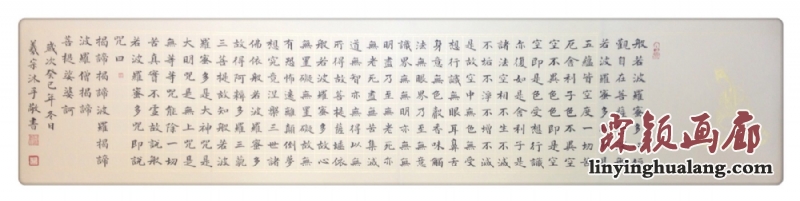 般若波羅
觀自在菩薩行深般
若波羅蜜多時照見
五蘊皆空度一切苦
厄舍利子色不異空
空不異色色即是空
空即是色受想行識
亦復如是舍利子是
諸法空相不生不滅
不垢不淨不增不減
是故空中無色無受
想行識無眼耳鼻舌
身意無色聲香味觸
法無眼界乃至無意
識界無無明亦無無
明盡乃至無老死亦
無老死盡無苦集滅
道無智亦無得以無
所得故菩提薩埵依
般若波羅蜜多故心
無罣礙無罣礙故無
有恐怖遠離顛倒夢
想究竟涅槃三世諸
佛依般若波羅蜜多
故得阿耨多羅三藐
三菩提故知般若波
羅蜜多是大神咒是
大明咒是無上咒是
無等等咒能除一切
苦真實不虛故說般
若波羅蜜多咒即說
咒曰
揭諦揭諦波羅揭諦
波羅僧揭諦
菩提娑婆訶
歲次癸巳年冬日
羲宗沐手敬書
霖颖画廊
linyinghualang.com